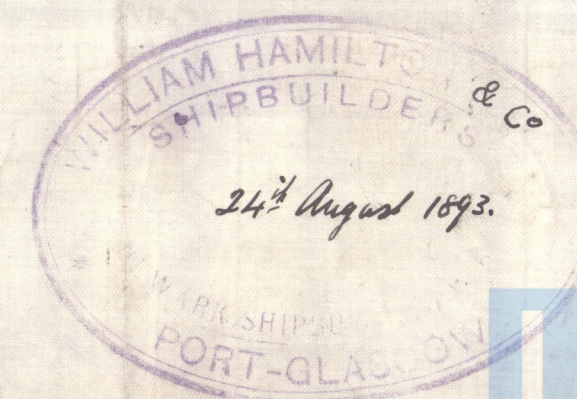 WILLIAM HAMILTON & Co
SHIPBUILDERS
24th August 1893.
PORT-GLASGOW